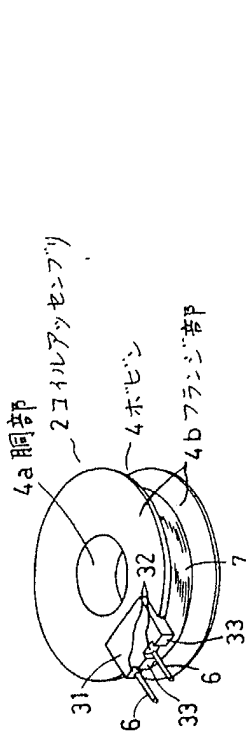 4a 胴部
2 コイルアッセンブリ
4 ボビン
4b フランジ部
31
32
6
33
6
33
7